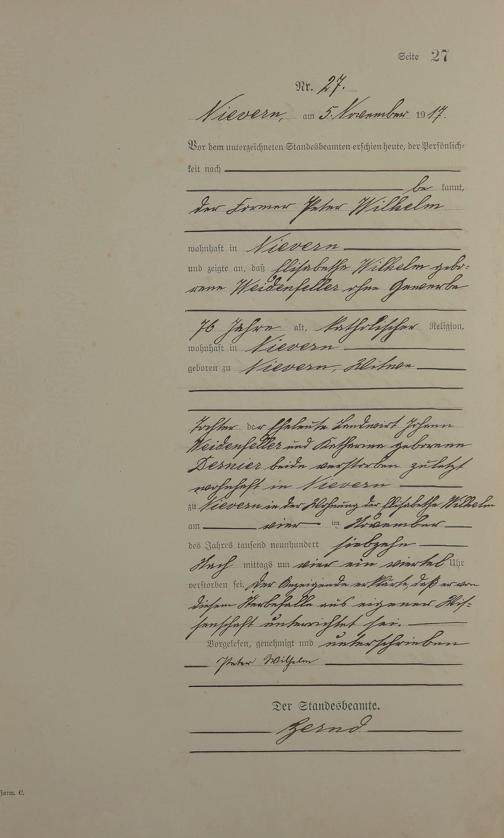 Seite 27
Nr. 27.
Nievern, am 5. November 1917.
Vor dem unterzeichneten Standesbeamten erschien heute, der Persönlich-
keit nach
be kannt,
der Former Peter Wilhelm
wohnhaft in Nievern
und zeigte an, daß Elisabethe Wilhelm gebo-
rene Weidenfeller ohne Gewerbe
76 Jahre alt, katholischer Religion,
wohnhaft in Nievern
geboren zu Nievern, Witwe
Tochter der Eheleute Landwirt Johann
Weidenfeller und Katharina geborenen
Dernier beide verstorben zuletzt
wohnhaft in Nievern
zu Nievern in der Wohnung der Elisabethe Wilhelm
am vier im November
des Jahres tausend neunhundert siebzehn
Nach mittags um vier ein viertel Uhr
verstorben sei. Der Anzeigende erklärte, daß er von
diesem Sterbefalle aus eigener Wis-
senschaft unterrichtet sei.
Vorgelesen, genehmigt und unterschrieben
Peter Wilhelm
Der Standesbeamte.
Form. C.